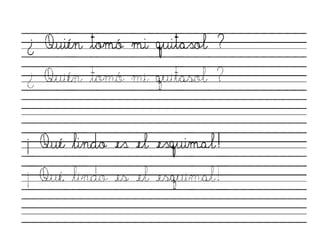 ¿ Quién tomó mi quitasol ?
¿ Quién tomó mi quitasol ?
¡ Qué lindo es el esquimal!
¡ Qué lindo es el esquimal!